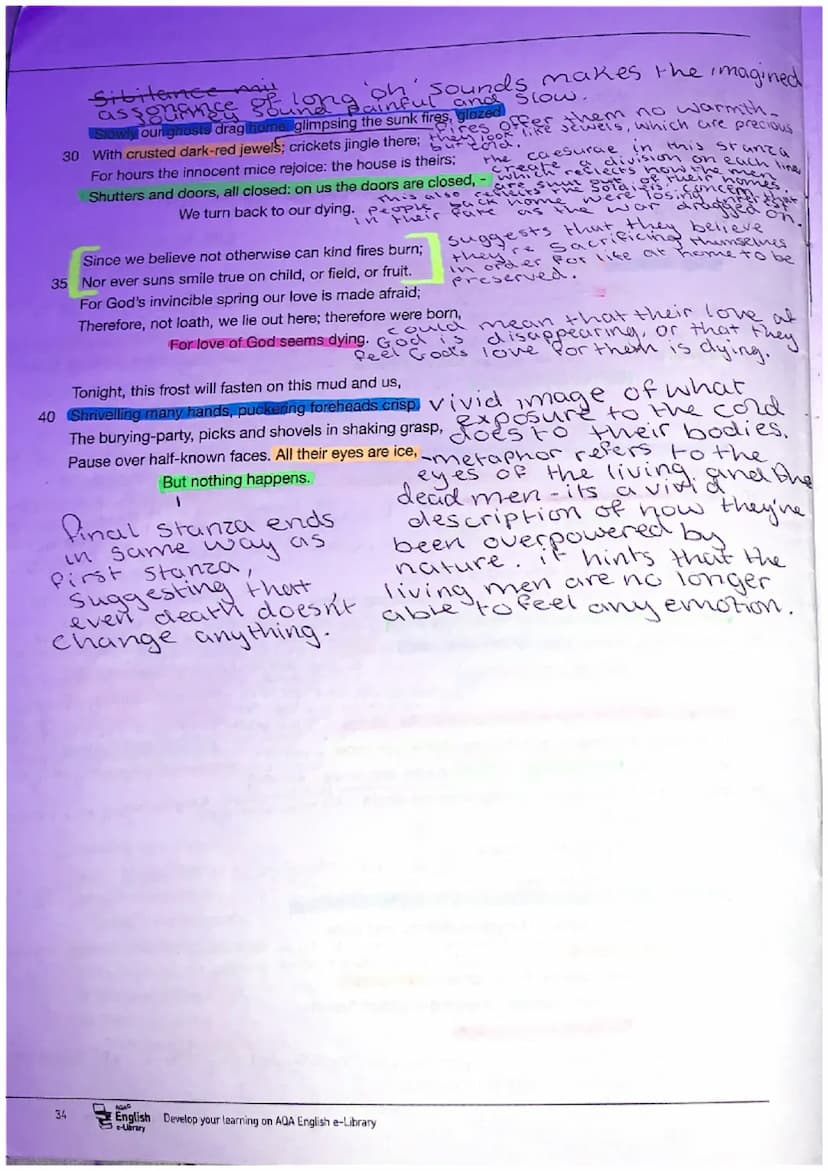 Sibilance mi
assonance of long 'oh' sounds makes the imagined
journey sound painful and slow.
Slowly our ghosts drag home: glimpsing the sunk fires, glozed
30 With crusted dark-red jewels; crickets jingle there;
For hours the innocent mice rejoice: the house is theirs;
Shutters and doors, all closed: on us the doors are closed, -
We turn back to our dying.
fires offer them no warmth-
they look like jewels, which are precious
but cold.
the caesurae in this stanza
create a division on each line
which reflects how the men
are shut out of their homes.
this also hints the soldiers' concern that
people back home were losing interest
in their fate as the war dragged on.
Since we believe not otherwise can kind fires burn;
35 Nor ever suns smile true on child, or field, or fruit.
For God's invincible spring our love is made afraid;
Therefore, not loath, we lie out here; therefore were born,
For love of God seems dying.
suggests that they believe
they're sacrificing themselves
in order for life at home to be
preserved.
could mean that their love of
God is disappearing, or that they
feel God's love for them is dying.
Tonight, this frost will fasten on this mud and us,
40 Shrivelling many hands, puckering foreheads crisp.
The burying-party, picks and shovels in shaking grasp,
Pause over half-known faces. All their eyes are ice,
But nothing happens.
vivid image of what
exposure to the cold
does to their bodies.
-metaphor refers to the
eyes of the living and the
dead men - its a vivid
description of how they're
been overpowered by
nature. it hints that the
living men are no longer
able to feel any emotion.
final stanza ends
in same way as
first stanza,
suggesting that
even death doesn't
change anything.
34 AQA English e-Library Develop your learning on AQA English e-Library